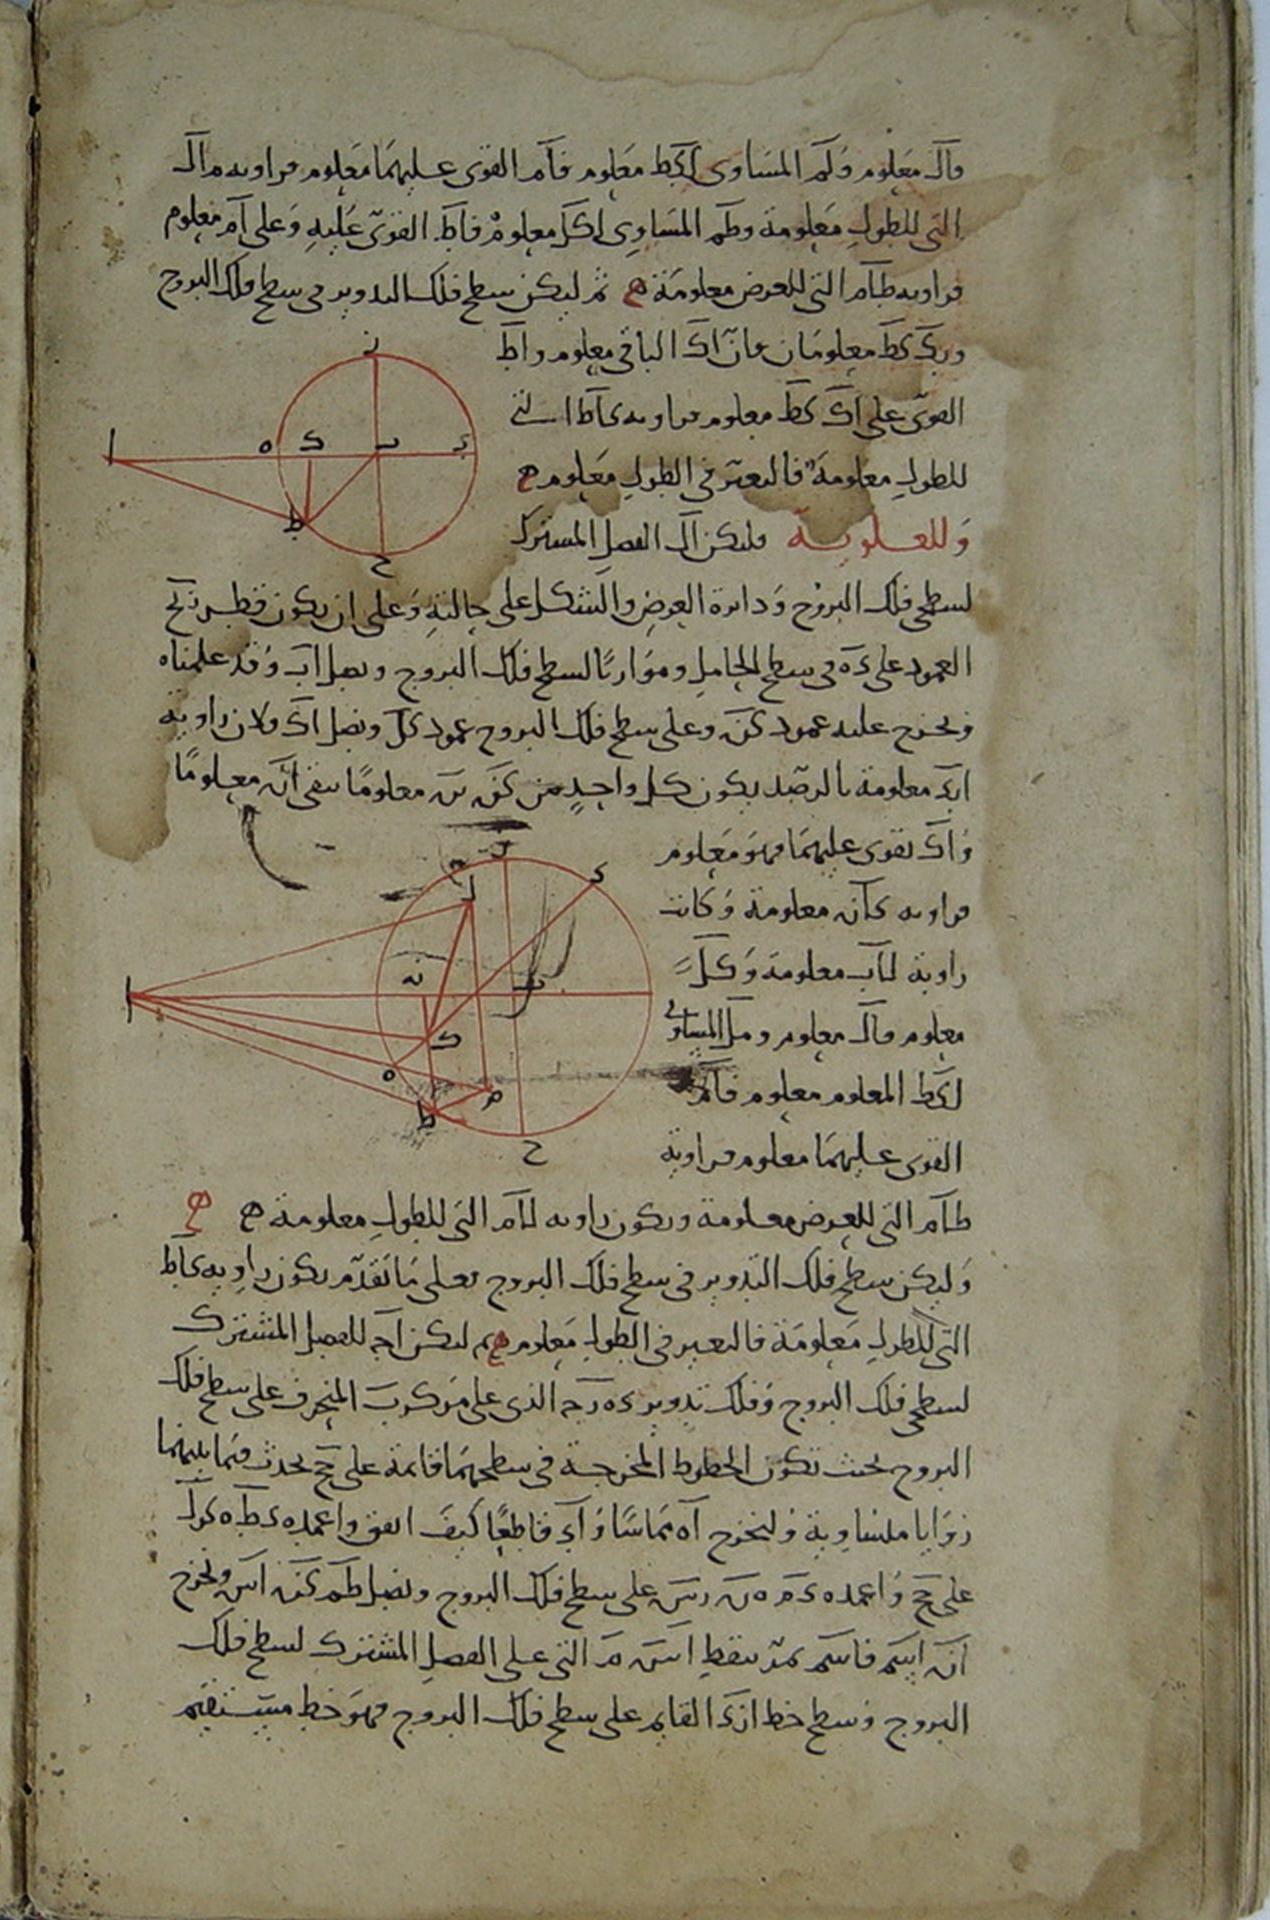 فآل معلوم ولم المساوى لكط معلوم فآم القوى عليهما معلوم فزاوية م آل
التى للطول معلومة وطم المساوى لكل معلوم فاط القوى عليه وعلى آم معلوم
فزاوية طام التى للعرض معلومة ثم ليكن سطح فلك التدوير فى سطح فلك البروج
وبك كط معلومان فان اك الباقى معلوم واط
القوى على اك كط معلوم فزاوية كاط التى
للطول معلومة فالتعبير فى الطول معلوم
وللعلوية فليكن آل الفصل المشترك
لسطحى فلك البروج ودائرة العرض والشكل على حالته وعلى ان يكون قطر زح
العمود على ءه فى سطح الحامل وموازيا لسطح فلك البروج ونصل اب وقد علمناه
ونخرج عليه عمود كن وعلى سطح فلك البروج عمود كل ونصل اك ولان زاوية
ابك معلومة بالرصد يكون كل واحد من كن بن معلوما يبقى ان معلوما
واك يقوى عليهما فهو معلوم
فزاوية كان معلومة وكانت
زاوية لاب معلومة وكل
معلوم فال معلوم ومل المساوى
لكط المعلوم معلوم فام
القوى عليهما معلوم فزاوية
طام التى للعرض معلومة ويكون زاوية لام التى للطول معلومة
وليكن سطح فلك التدوير فى سطح فلك البروج فعلى ما تقدم يكون زاوية كاط
التى للطول معلومة فالتعبير فى الطول معلوم ثم ليكن اجـ للفصل المشترك
لسطحى فلك البروج وفلك تدوير ءه زجـ الذى على مركز ب المنحرف على سطح فلك
البروج بحيث تكون الخطوط المخرجة فى سطحهما قائمة على جح يحدث فيما بينهما
زوايا متساوية ولنخرج اه مماسا واء قاطعا كيف اتفق واعمدة ءط ه ك زل
على جح واعمدة ءم ه ن زس على سطح فلك البروج ونصل طم كن اس ونخرج
ان اسم فاسم يمر بنقط ا س م التى على الفصل المشترك لسطح فلك
البروج وسطح خط ازء القايم على سطح فلك البروج فهو خط مستقيم